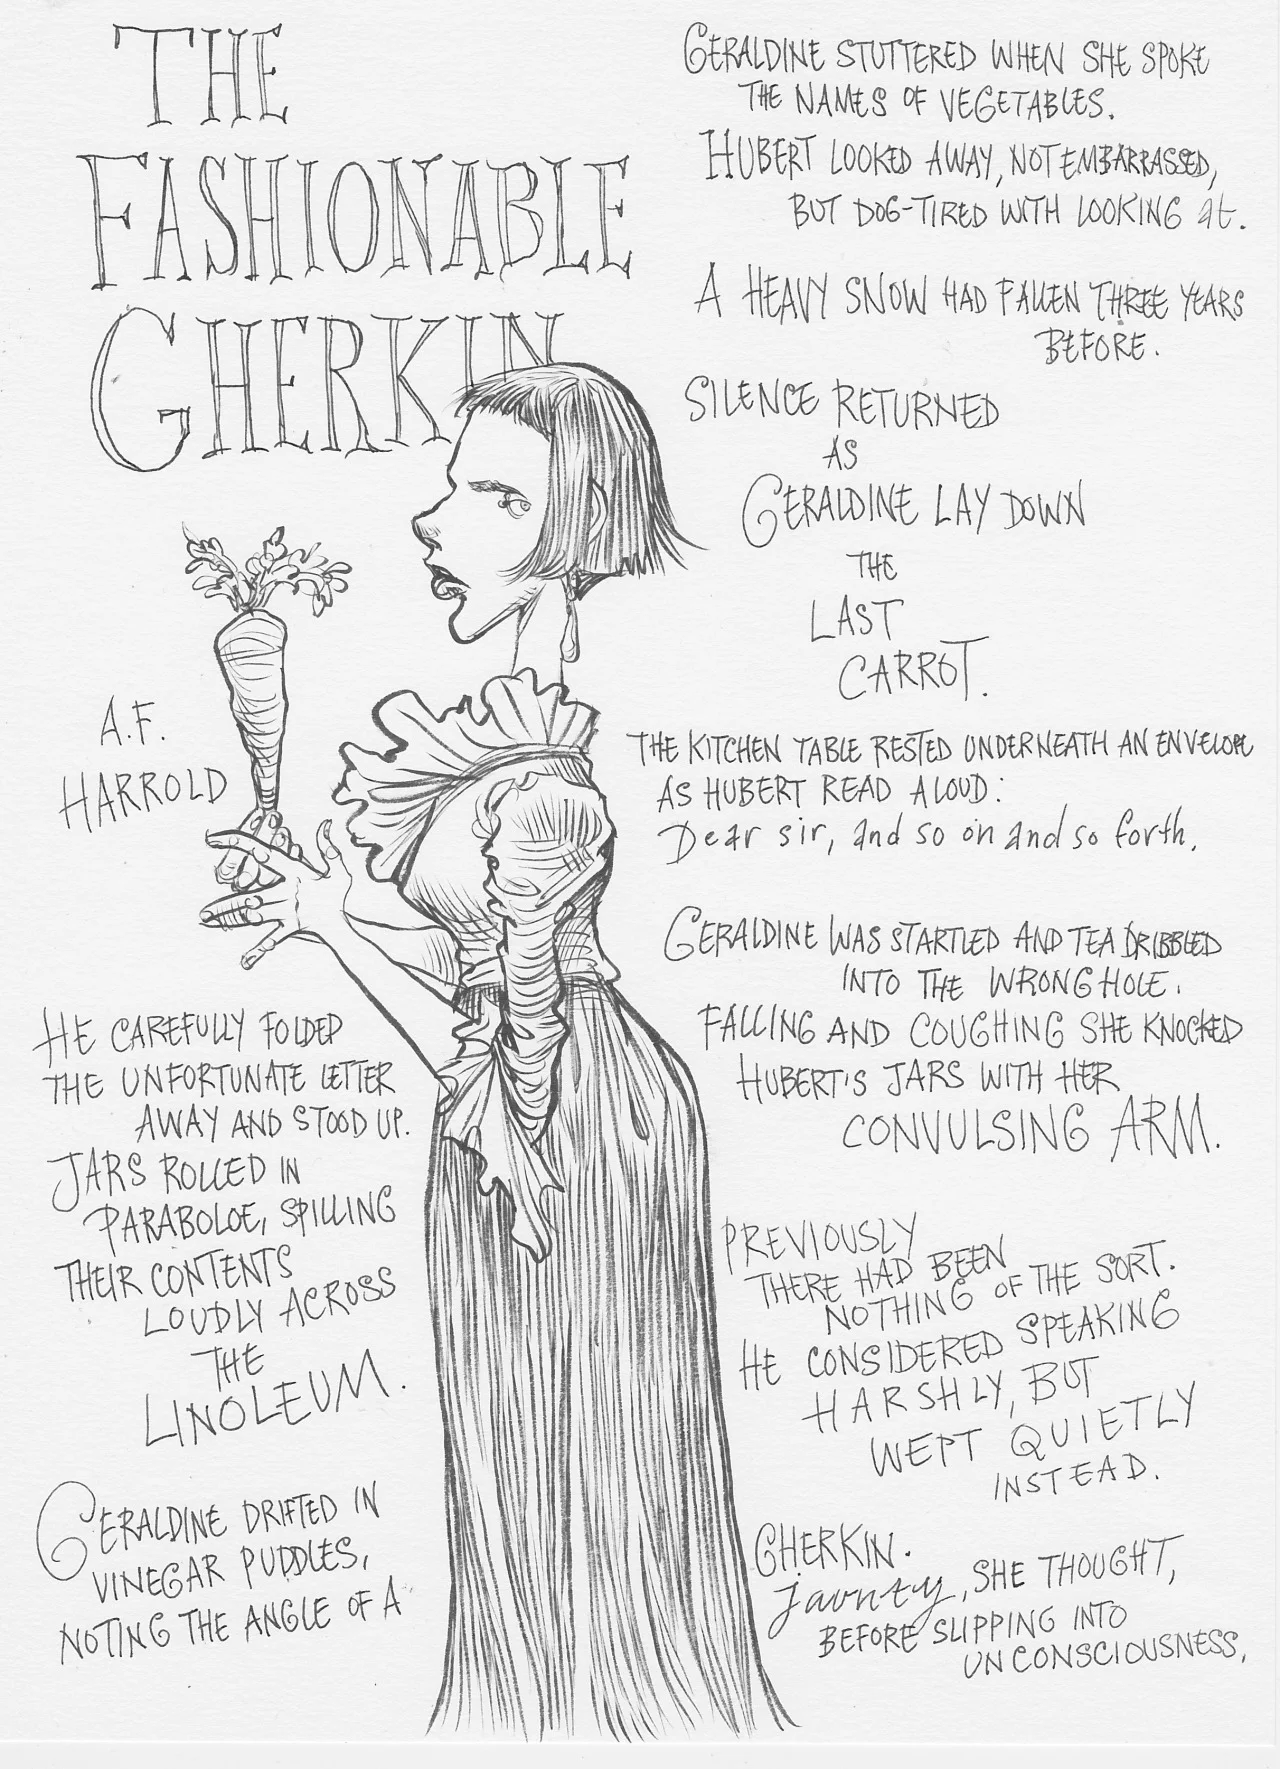 THE
FASHIONABLE
GHERKIN
A.F.
HARROLD
GERALDINE STUTTERED WHEN SHE SPOKE
THE NAMES OF VEGETABLES.
HUBERT LOOKED AWAY, NOT EMBARRASSED,
BUT DOG-TIRED WITH LOOKING at.
A HEAVY SNOW HAD FALLEN THREE YEARS
BEFORE.
SILENCE RETURNED
AS
GERALDINE LAY DOWN
THE
LAST
CARROT.
THE KITCHEN TABLE RESTED UNDERNEATH AN ENVELOPE
AS HUBERT READ ALOUD:
Dear sir, and so on and so forth.
GERALDINE WAS STARTLED AND TEA DRIBBLED
INTO THE WRONG HOLE.
FALLING AND COUGHING SHE KNOCKED
HUBERT'S JARS WITH HER
CONVULSING ARM.
HE CAREFULLY FOLDED
THE UNFORTUNATE LETTER
AWAY AND STOOD UP.
JARS ROLLED IN
PARABOLOE, SPILLING
THEIR CONTENTS
LOUDLY ACROSS
THE
LINOLEUM.
PREVIOUSLY
THERE HAD BEEN
NOTHING OF THE SORT.
HE CONSIDERED SPEAKING
HARSHLY, BUT
WEPT QUIETLY
INSTEAD.
GERALDINE DRIFTED IN
VINEGAR PUDDLES,
NOTING THE ANGLE OF A
GHERKIN.
Jaunty, SHE THOUGHT,
BEFORE SLIPPING INTO
UNCONSCIOUSNESS.